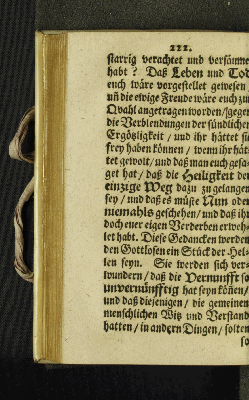 222.
starrig verachtet und versäume
habt? Daß Leben und Tod
euch wäre vorgestellet gewesen
uñ die ewige Freude wäre euch zur
Qvahl angetragen worden/ (gegen
die Verblendungen der sündlichen
Ergötzligkeit / und ihr hättet sie
frey haben können / wenn ihr hät-
tet gewolt/ und daß man euch gesa-
get hat / daß die Heiligkeit der
einzige Weg dazu zu gelangen
sey / und daß es müste Nun oder
niemahls geschehen/ und daß ihr
doch euer eigen Verderben erweh-
let habt. Diese Gedancken werden
den Gottlosen ein Stück der Hel-
len seyn. Sie werden sich ver-
wundern / daß die Vernunfft so
unvernünfftig hat seyn köñen/
und daß diejenigen / die gemeinen
menschlichen Witz und Verstand
hatten / in andern Dingen/ solten
so